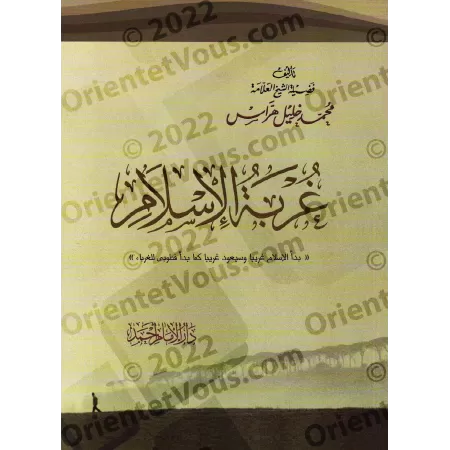 © 2022
OrientetVous.com
تأليف
فضيلة الشيخ العلامة
محمد خليل هراس
© 2022
OrientetVous.com
غربة الإسلام
© 2022
« بدأ الإسلام غريبا وسيعود غريبا كما بدأ فطوبى للغرباء »
OrientetVous.com
دار الإمام أحمد
© 2022
OrientetVous.com
© 2022
OrientetVous.com